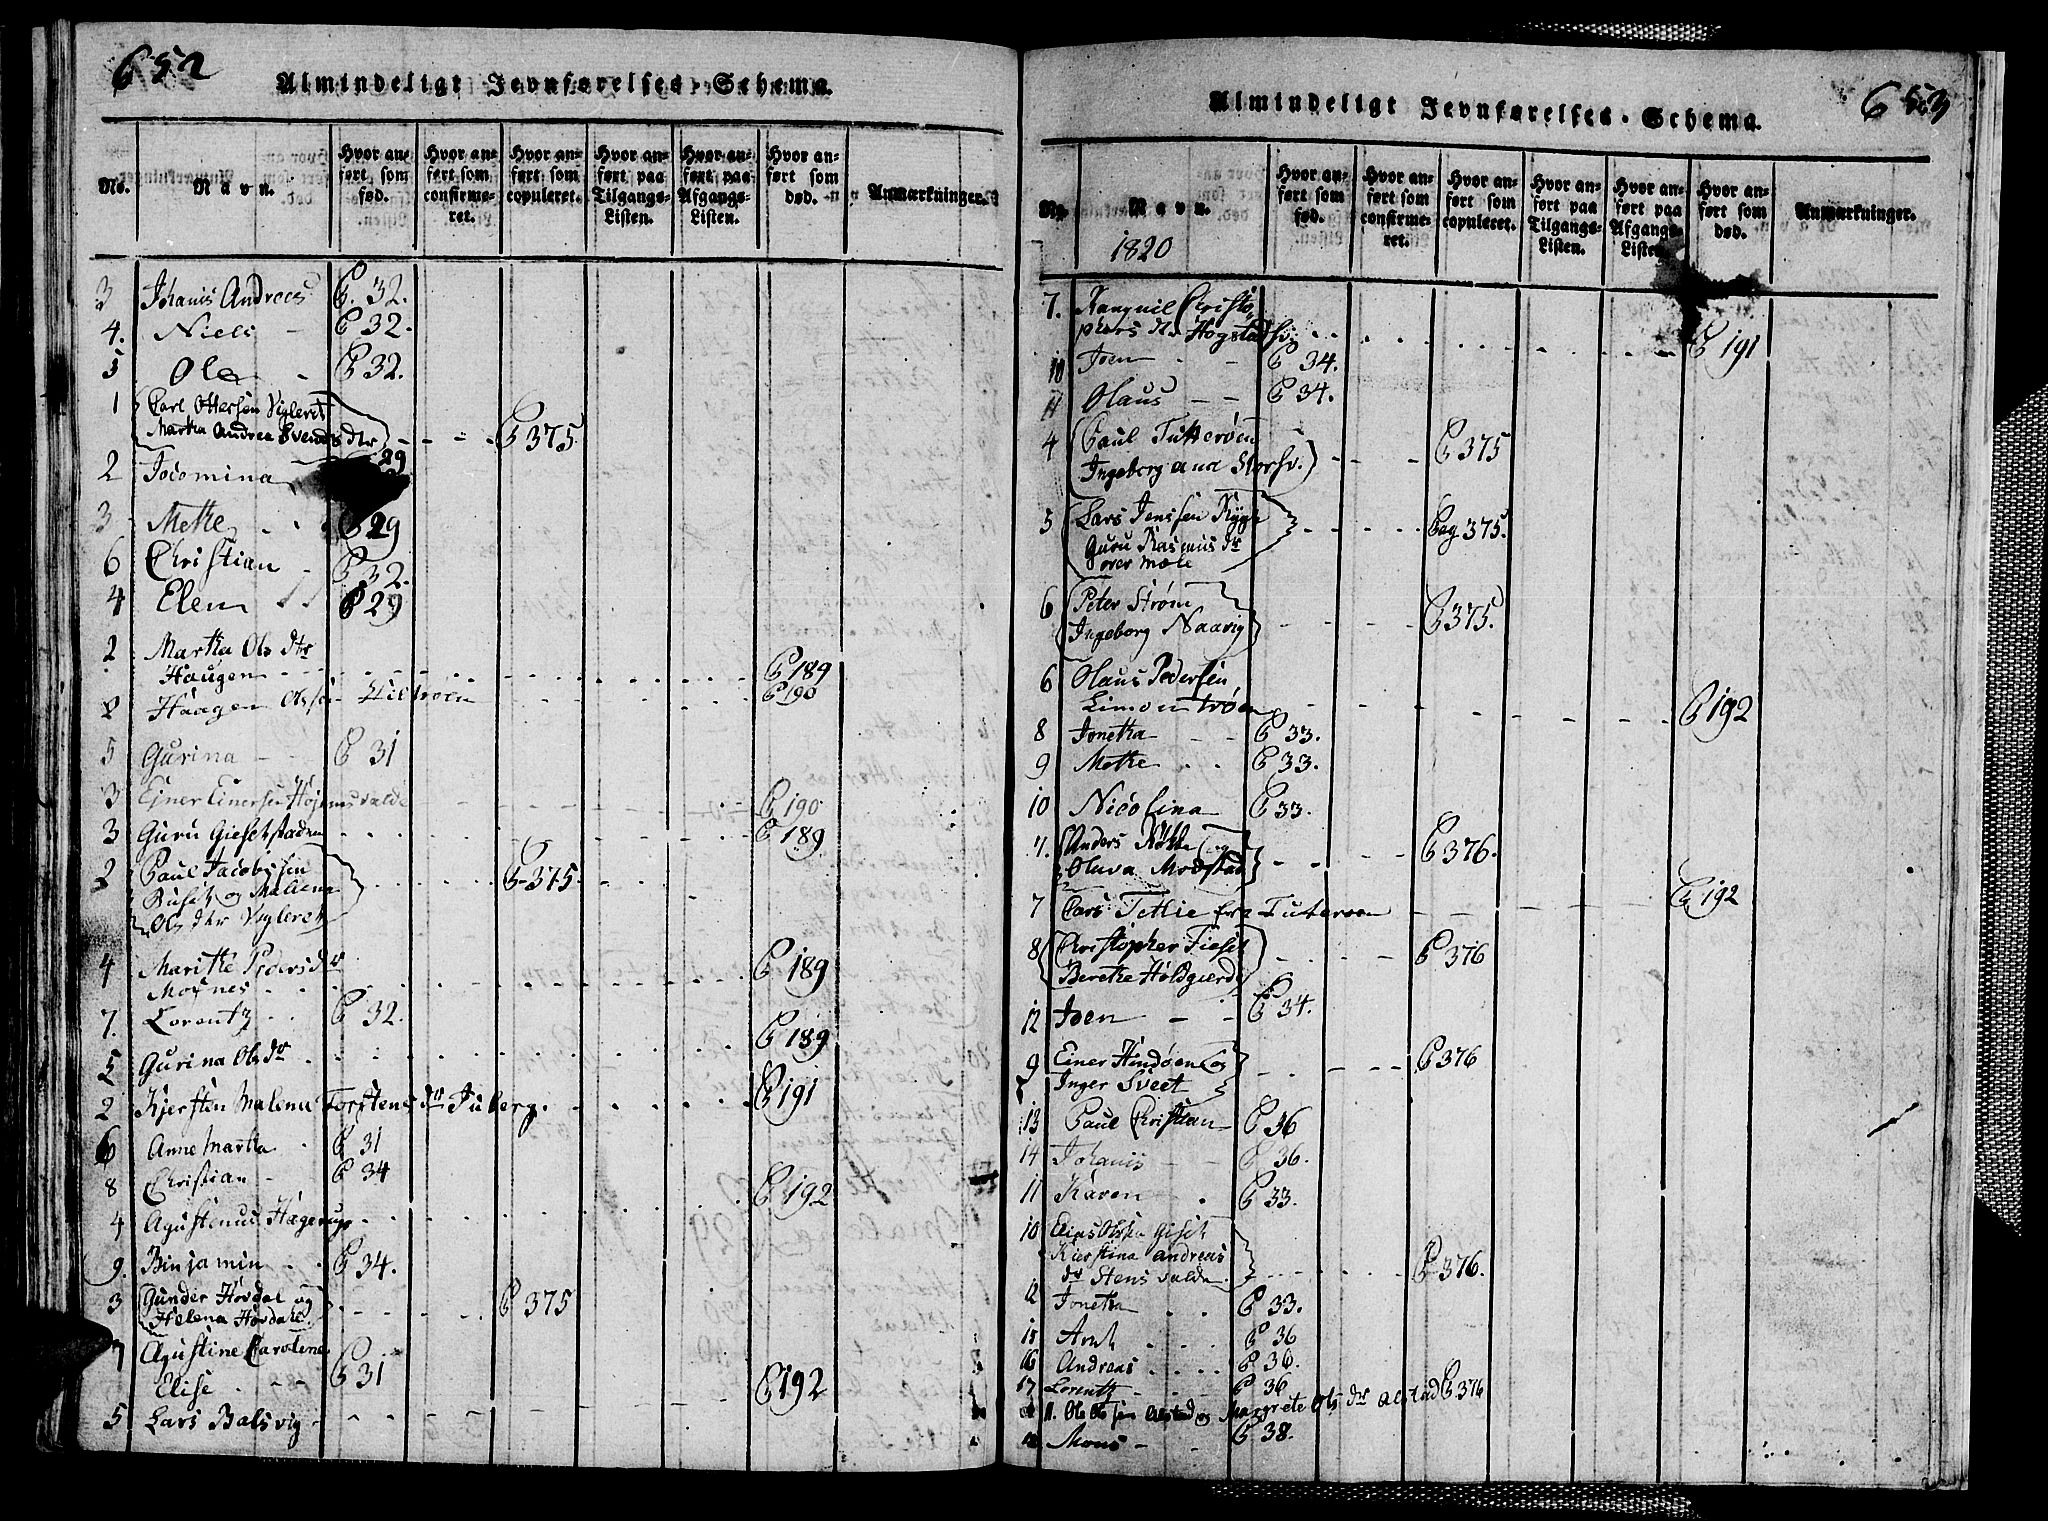 652
Almindeligt Jevnførelses-Schema.
No.
Navn.
Hvor anført som fød.
Hvor anført som confirmeret.
Hvor anført som copuleret.
Hvor anført paa Tilgangs-Listen.
Hvor anført paa Afgangs-Listen.
Hvor anført som død.
Anmærkninger.
3 Johanis Andreas P. 32.
4. Niels - P 32.
5 Ole - P 32.
1 Carl Ottersen Viglerets
Martha Andrea Svends dtr - - - P 375
2 Jocomina 29
3 Methe - P 29
6 Christian - P 32.
4 Elen P 29
2 Martha Ols dtr
Haugen - - - P 189
Haagen Olsen P 190
5 Gurina - - P 31
3 Ejner Einersen - - - P 190
3 Guru - - - P 189
2 Paul Jacobssen
og Malena
Ols dtr Vigleret - - - P 375.
4 Marithe Peders dr
Mosnes - - - P 189
7. Lorentz - - P 32.
5 Gurina Ols dr - - - P 189
2 Kjersten Malena Torstens dr - - - P 191
6 Anne Martha - P 31
8 Christian - P 34
4 Agustenus Hagerup - - - P 192
9. Binjamin - - P 34.
3 Gunder Hovdal og
Helena - - - P 375
7 Agustine Carolina
Elise - - P 31
5 Lars Balsvig - - - P 192
653
Almindeligt Jevnførelses-Schema.
No.
Navn.
Hvor anført som fød.
Hvor anført som confirmeret.
Hvor anført som copuleret.
Hvor anført paa Tilgangs-Listen.
Hvor anført paa Afgangs-Listen.
Hvor anført som død.
Anmærkninger.
1820
7. Ranquil Christo-
phers dr - - - P 191
10 Joen - - P 34.
11 Olaus - - P 34.
4 Paul Tutterøen
Ingeborg - - - P 375
5 Lars Jenssen
Guru Rasmus dr
- - - Pag 375.
6 Peter Strøm
Ingeborg Naavig - - - P 375.
6 Olaus Pedersen
- - - P 192
8 Jonetha - - P 33.
9 Methe - - P 33.
10 Nicolina P 33.
7. Anders og
Oluva Modstad - - - P 376.
7 Lars Tethie fra - - - P 192
8 Christopher
Berethe - - - P 376
12 Joen - - P 34.
9 Einer og
Inger Sveet - - - P 376
13 Paul Christian P 36
14 Johanis - - P 36.
11 Karen - P 33.
10 Elias
Kierstina Andreas
dr - - - P 376.
12 Jonetha - - P 33.
15 Arnt - - - P 36
16 Andreas - - - P 36.
17 Lorentz - - P 36
11. Ole Olsen Alstad og Margrete Ols dr Alstad P 376
Mons - - P 38.